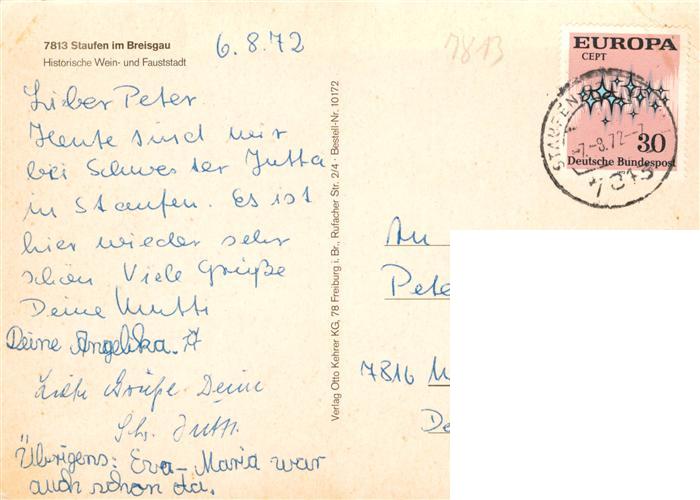 7813 Staufen im Breisgau
Historische Wein- und Fauststadt
6.8.72
Lieber Peter
Heute sind wir
bei Schwester Jutta
in Staufen. Es ist
hier wieder sehr
schön Viele Grüße
Deine Mutti
Deine Angelika.
Liebe Grüße Deine
Schw. Jutta
Übrigens: Eva-Maria war
auch schon da.
Verlag Otto Kehrer KG, 78 Freiburg i. Br., Rufacher Str. 2/4 · Bestell-Nr. 10172
7813
EUROPA
CEPT
30
Deutsche Bundespost
STAUFEN
-7.-8.72-7
7813
An
Pete
7816